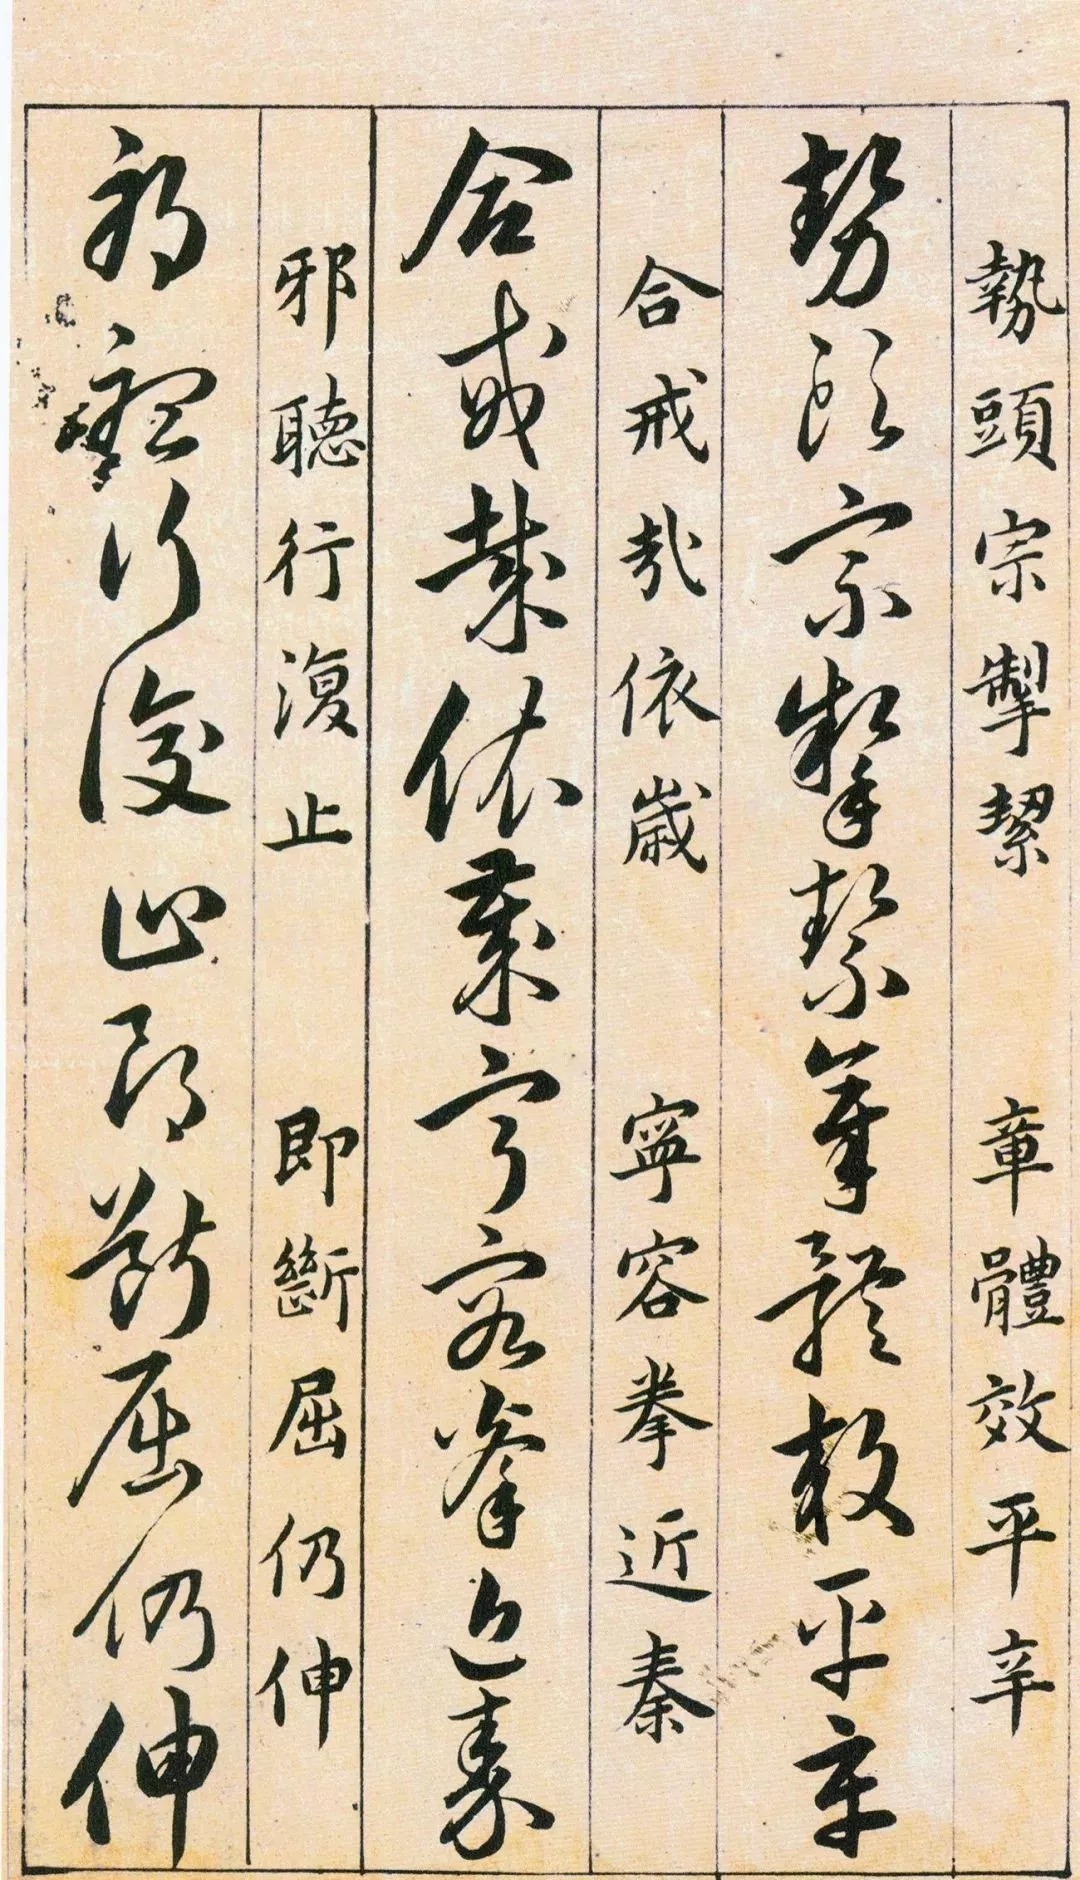 勢頭宗掣絜 章體效平辛
勢頭宗掣絜章體效平辛
合戒依歲 寧容拳近秦
合戒依歲寧容拳近秦
邪聽行復止 即斷屈仍伸
邪聽行復止即斷屈仍伸